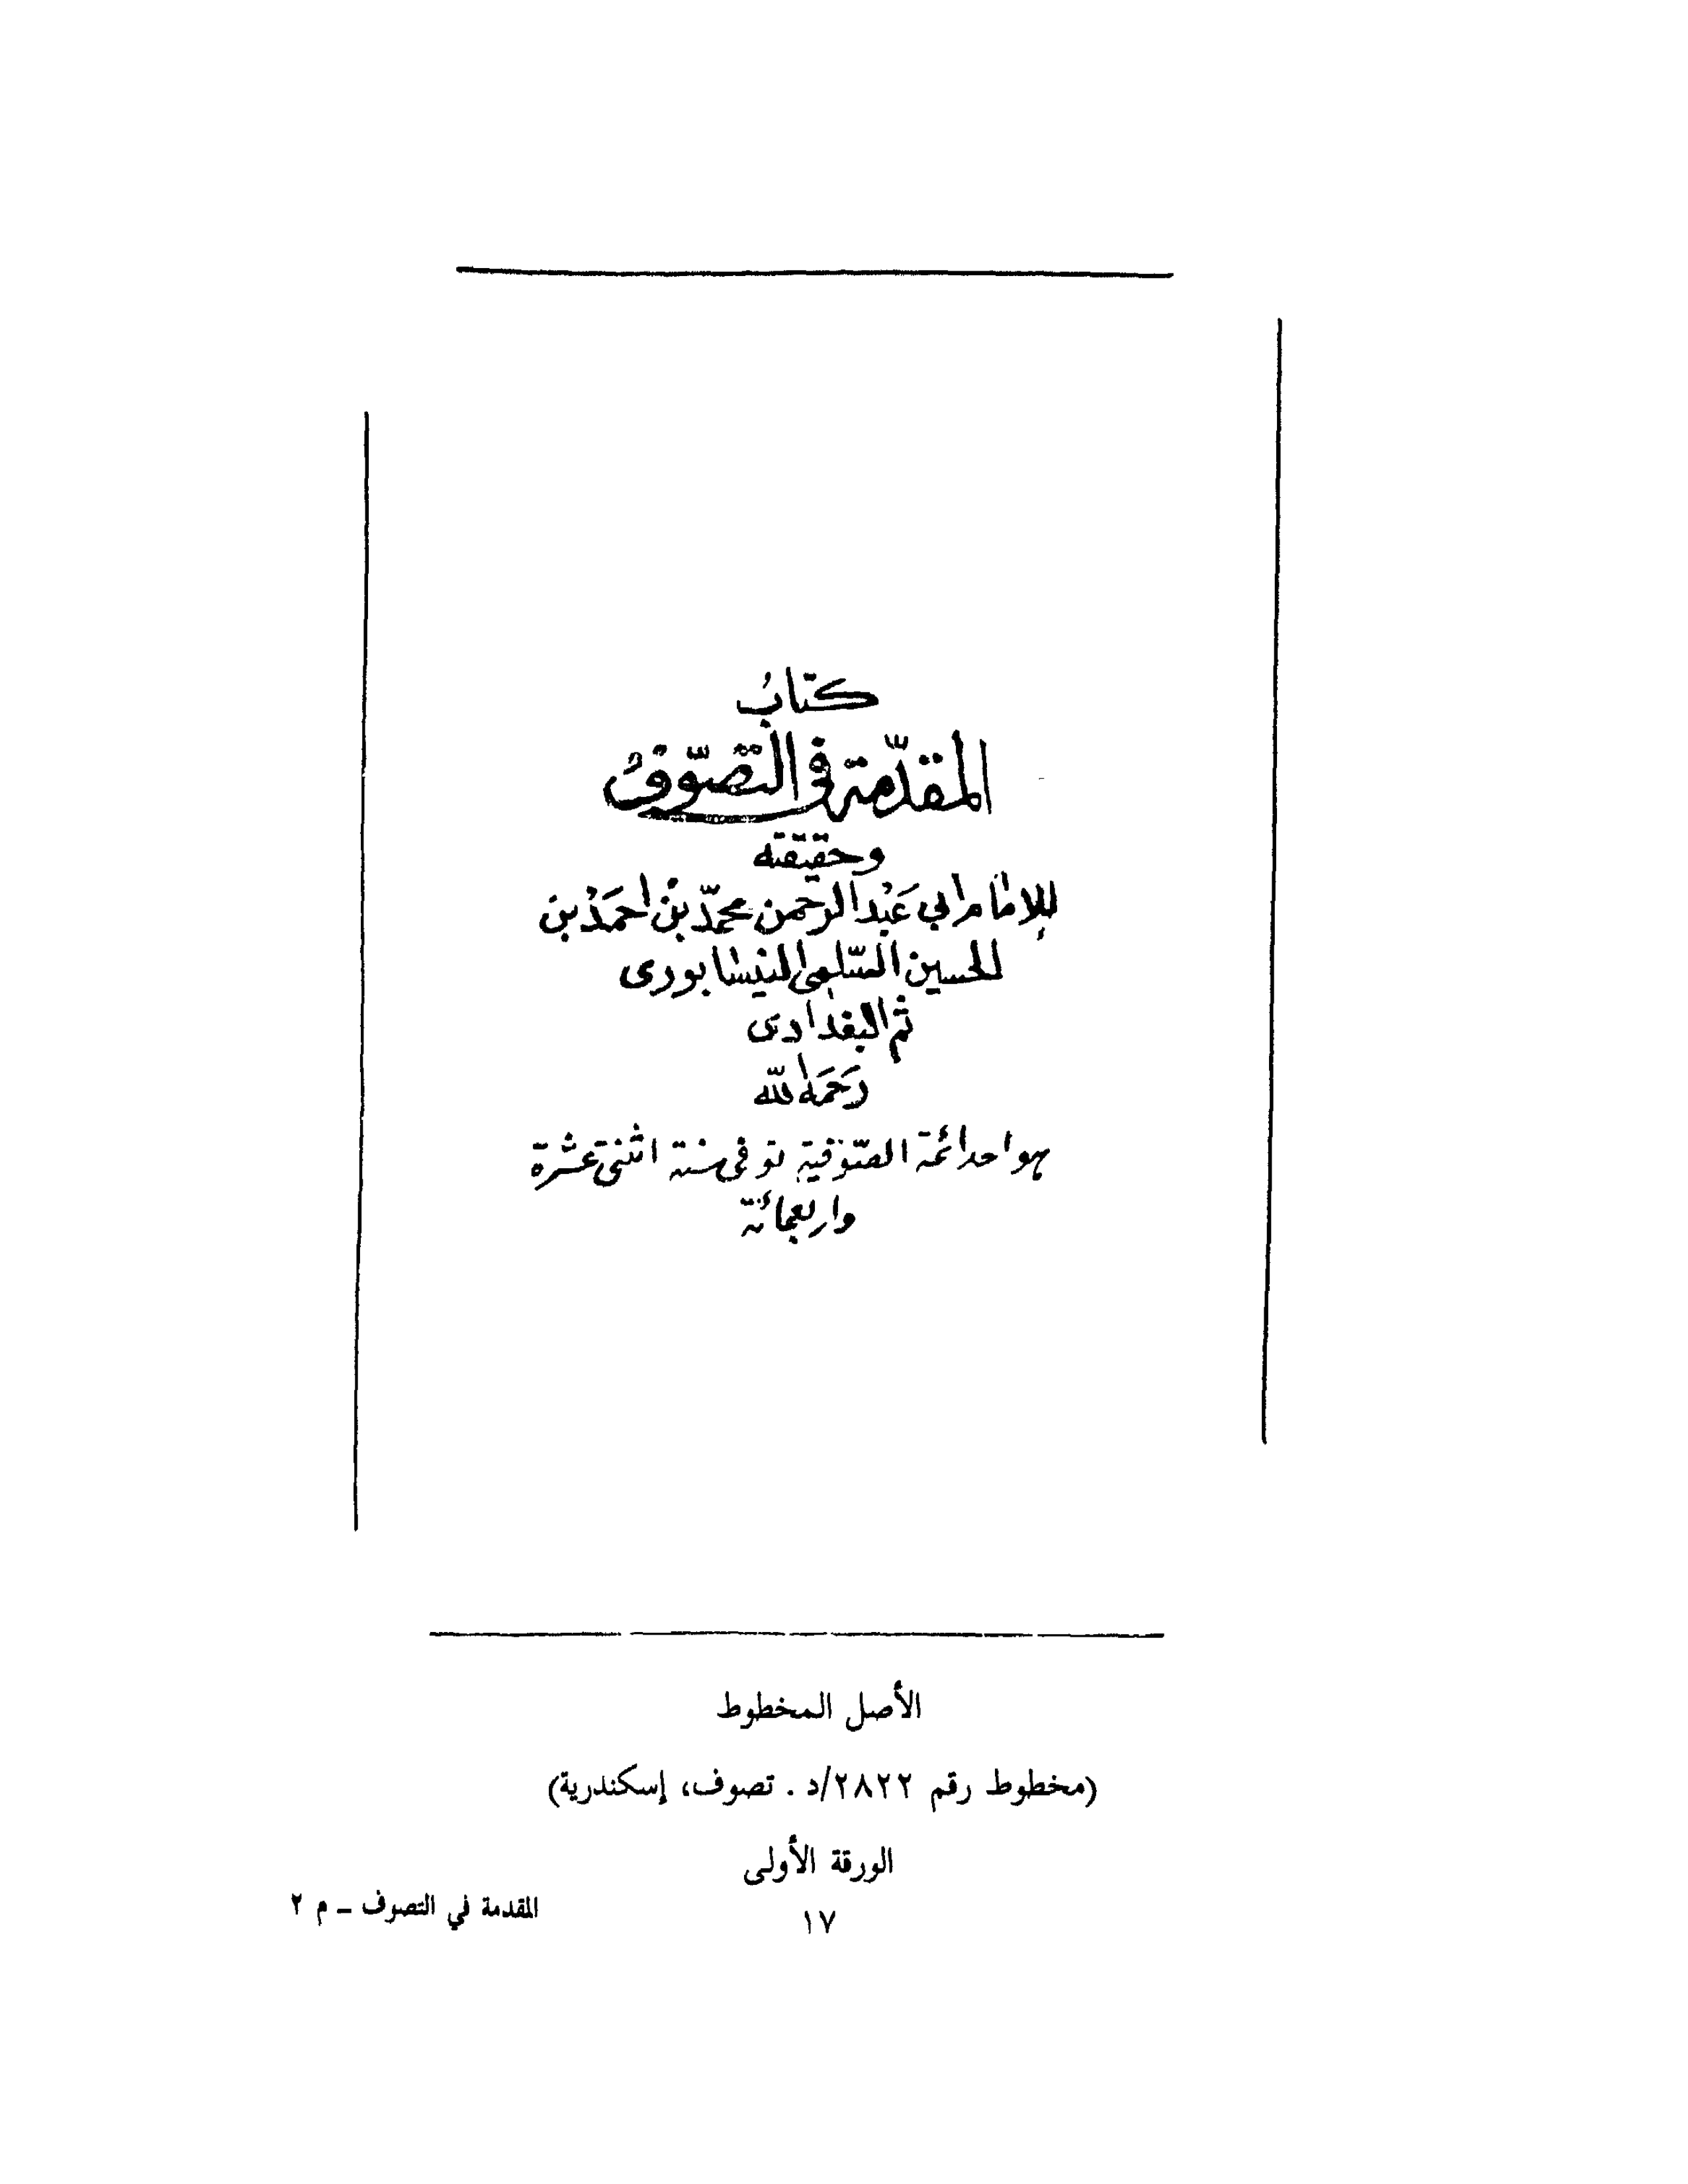 كتابُ
المقدّمة في التصّوفُ
وحقيقته
للامام ابي عَبْد الرحمن محمّد بْن احمَدْ بن
الحسين السّلمى النيسابورى
ثم البغدادى
رَحمَهُ اللّه
هو احد ائمة الصّوفية توفى سنة اثنتى عشرة
واربعمائة
الأصل المخطوط
(مخطوط رقم ٢٨٢٢/د . تصوف، إسكندرية)
الورقة الأولى
المقدمة في التصوف ــ م ٢
١٧